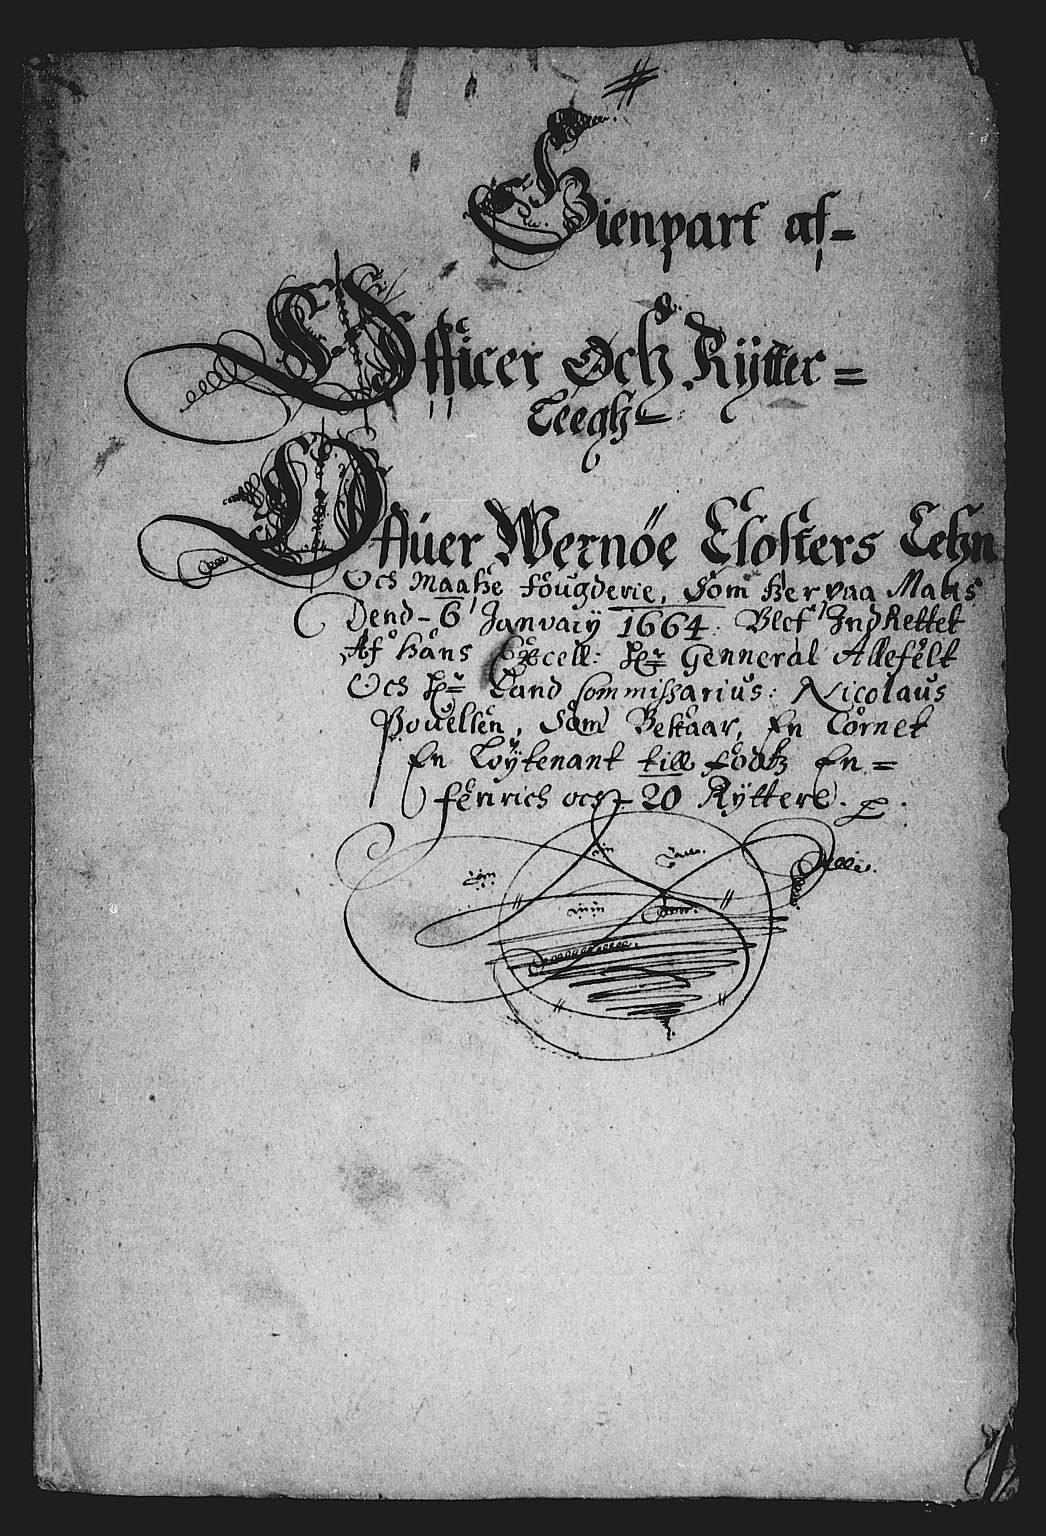 Gienpart af-
Officer Och Rÿtter=
Leegh
Offuer Wernöe Closters Lehn
Och Maatze fougderie, Som her paa Maas
Dend - 6 Januarij 1664. Blef Indrettet
Af Hans Excell: Hr Genneral Allefelt
Och Hr Land Commissarius: Nicolaus
Povelsen, Som Bestaar, En Cornet
En Löÿtenant till fodtz En=
fenrich och - 20 Rÿttere.